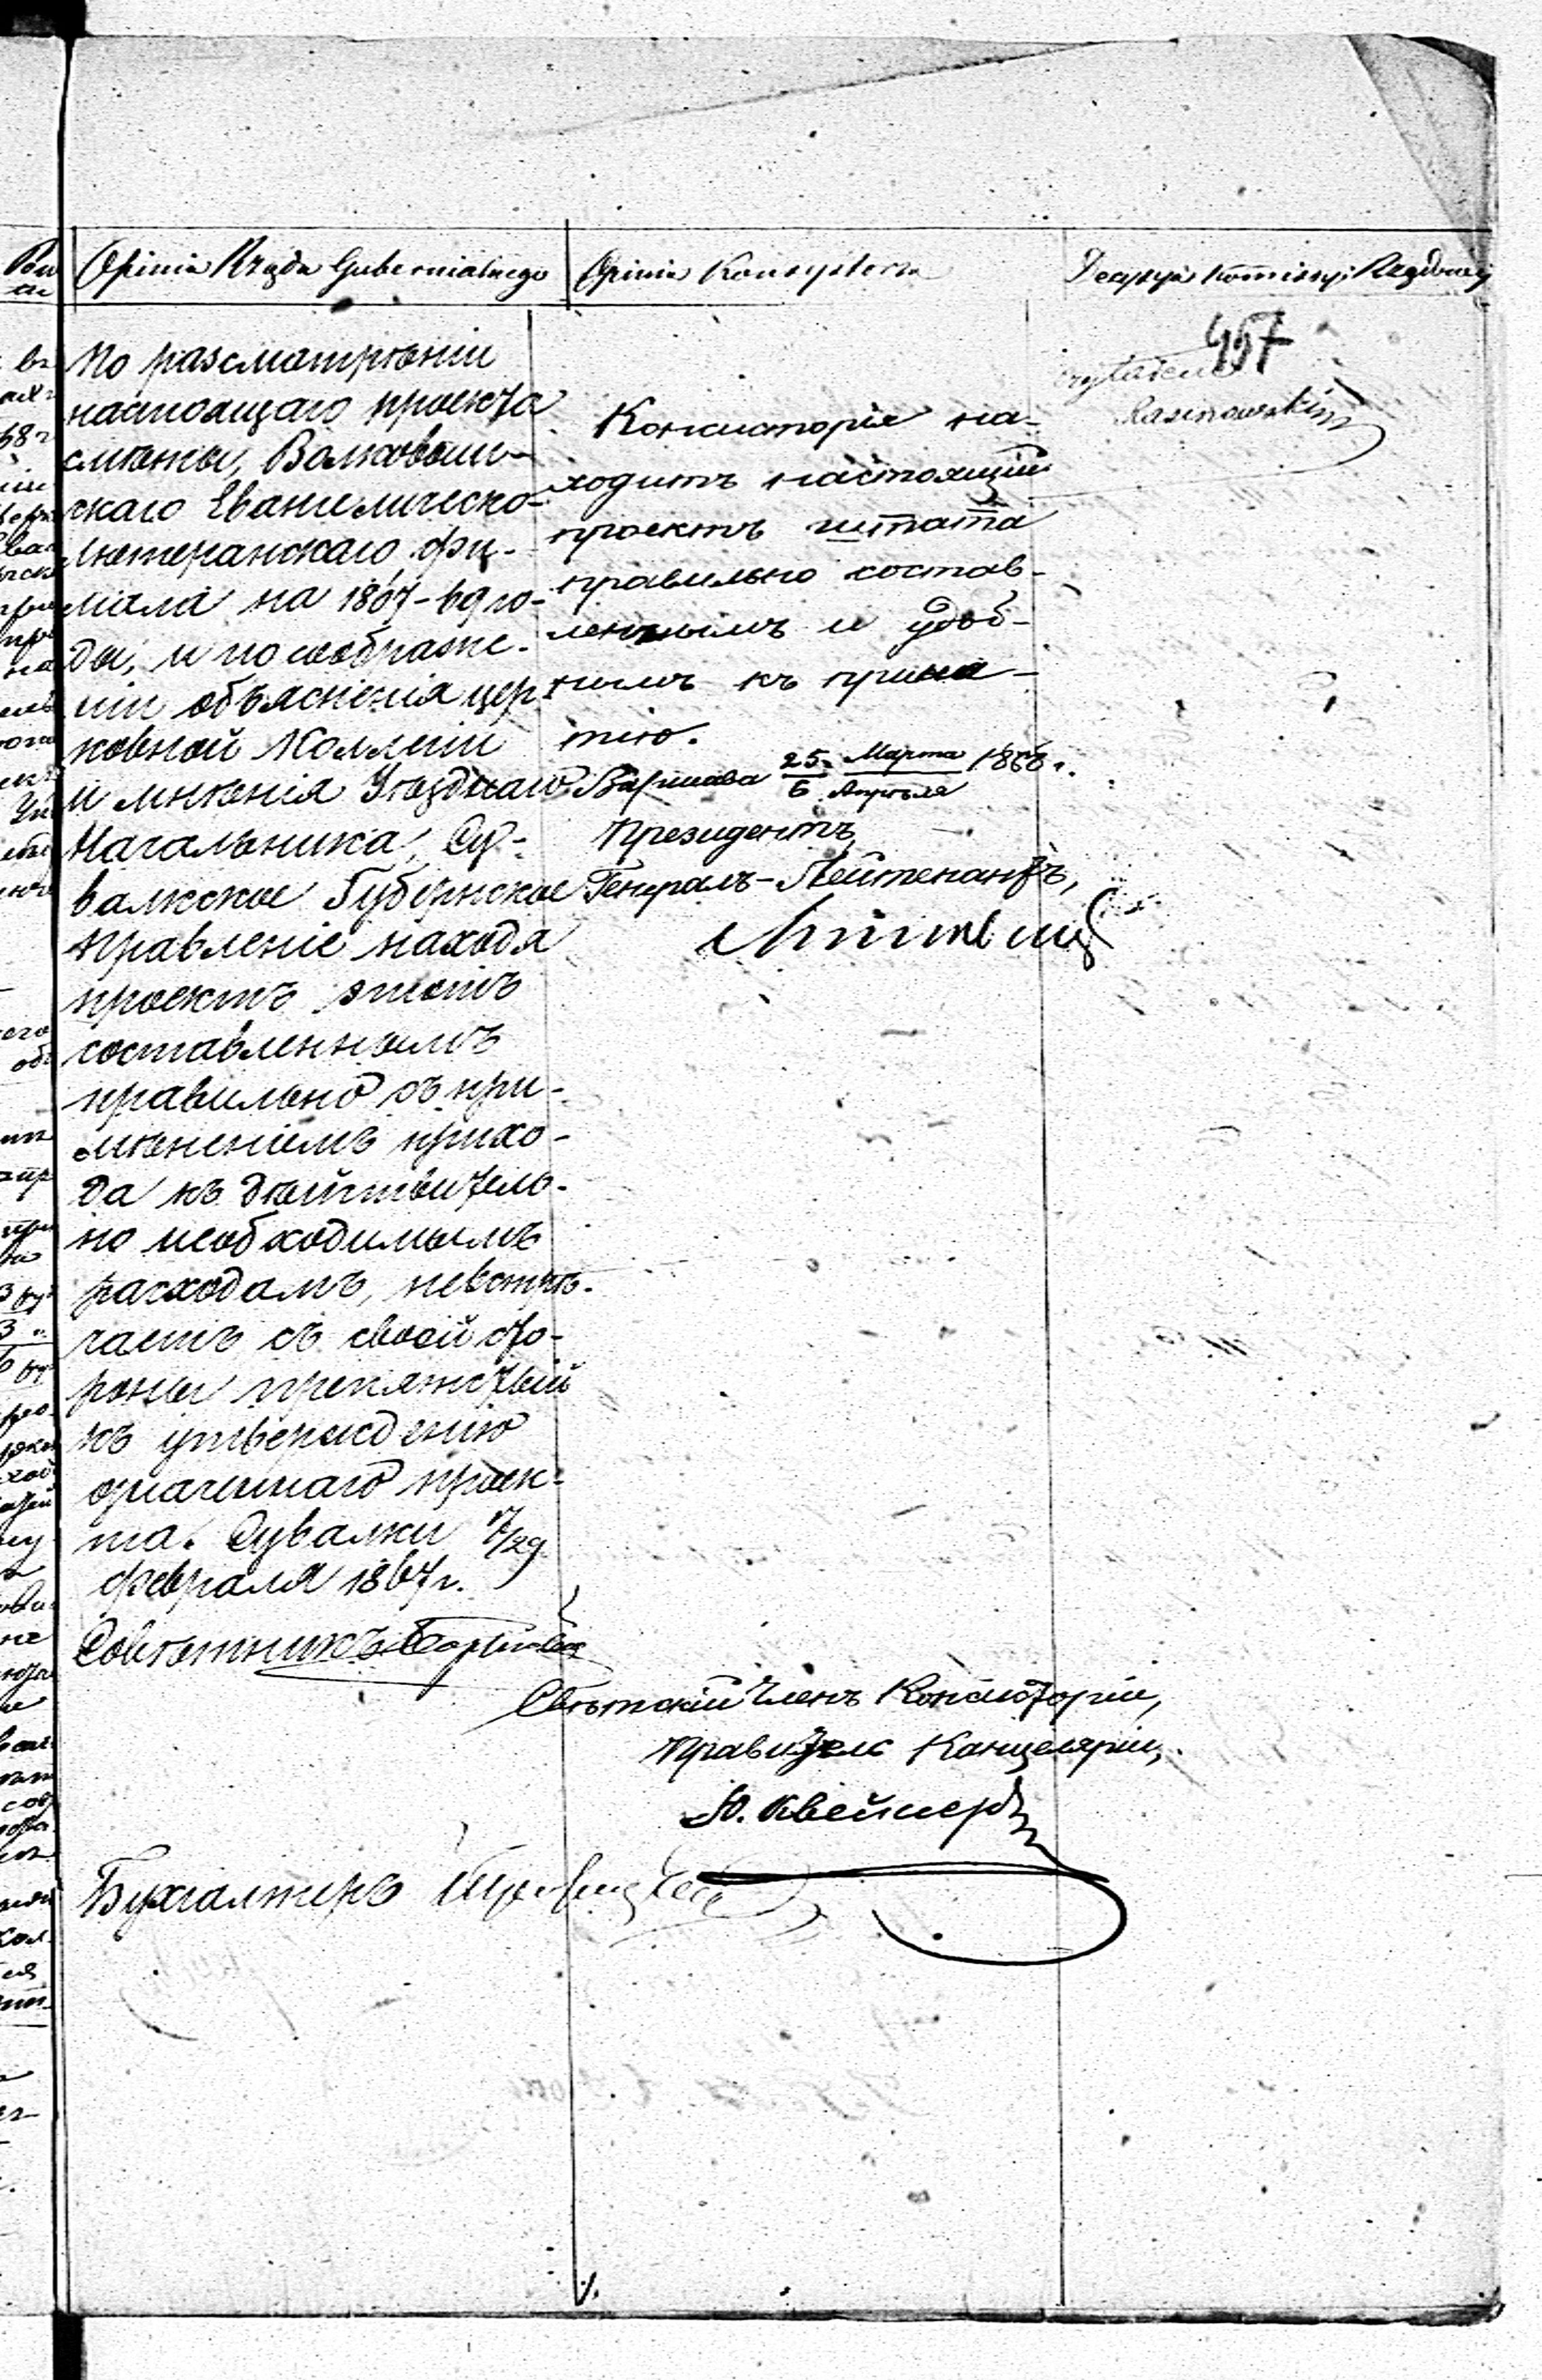 Opinia Rządu Gubernialnego
Opinia Konsystorza
Decyzya Kommissyi Rządowej
457
По разсмотрѣніи
настоящаго проекта
смѣты, Волковыш-
скаго Евангелическо-
Лютеранскаго фи-
ліала на 1867-69 го-
ды, и по соображе-
ніи объясненія цер-
ковной Коллегіи
и мнѣнія Уѣзднаго
Начальника, Су-
валкское Губернское
Правленіе находя
проектъ этотъ
составленнымъ
правильно съ при-
мѣненіемъ прихо-
да къ дѣйствитель-
но необходимымъ
расходамъ, невстрѣ-
чаетъ съ своей сто-
роны препятствій
къ утвержденію
означеннаго проек-
та. Сувалки 17/29
февраля 1867 г.
Совѣтникъ
Бухгалтеръ
Консисторія на-
ходитъ настоящій
проектъ штата
правильно состав-
леннымъ и удоб-
нымъ къ приня-
тію.
Варшава 25 Марта / 6 Апрѣля 1868 г.
Президентъ,
Генералъ-Лейтенантъ,
Свѣтскій Членъ Консисторіи,
Правитель Канцеляріи,
Ю. Квейсеръ